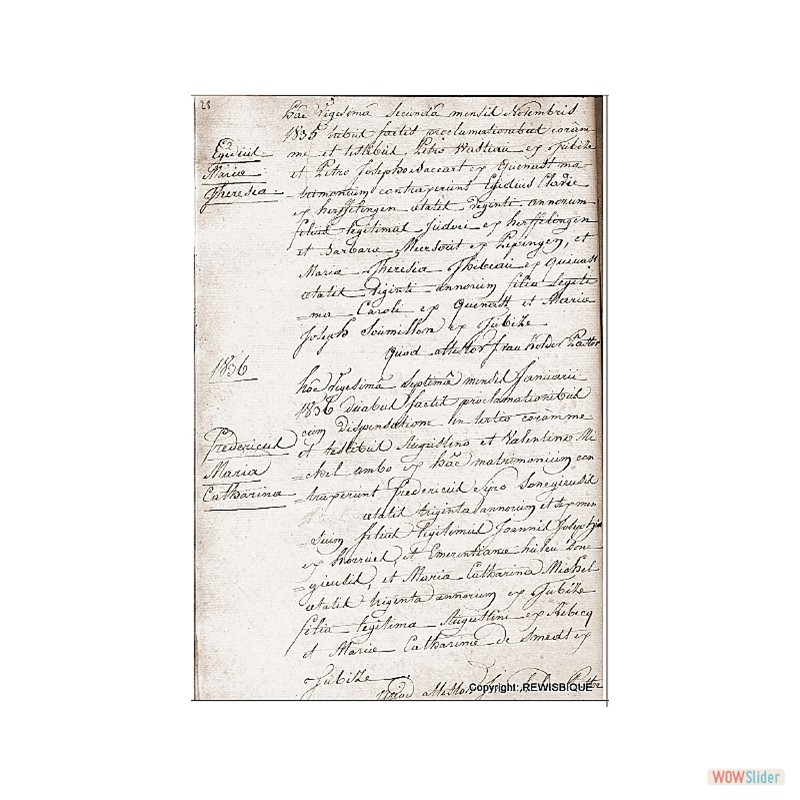 28
hâc Vigesimâ secundâ mensis Novembris
1835 tribus factis proclamationibus coram
me et testibus Petro Wastiau ex
Egidius
et Petro Josepho Daccart ex Quenast ma-
Maria
trimonium contraxerunt Egidius Clarie
Theresia
ex herffelingen ætatis viginti annorum
filius legitimus Judoci ex herffelingen
et Barbara ex Pepingen, et
Maria Theresia Thibeau ex Quenast
ætatis Viginti annorum filia legiti
ma Caroli ex Quenast et Mariæ
Joseph Soumillon ex Tubize
quod attestor Pastor
1836
hâc Vigesimâ septimâ mensis Januarii
1836 duabus factis proclamationibus
cum dispensatione in tertio coram me
Fredericus
et testibus Augustino et Valentino Mi
Maria
chel ambo ex hâc matrimonium con
Catharina
traxerunt Fredericus
ætatis triginta annorum et sex men
sium filius legitimus Joannis Josephi
ex horrues, et Emerentianæ
et Maria Catharina Michel
ætatis triginta annorum ex Tubize
filia legitima Augustini ex Rebecq
et Mariæ Catharinæ de Smedt ex
Tubize
quod attestor Pastor
Copyright: REWISBIQUE
WOWSlider